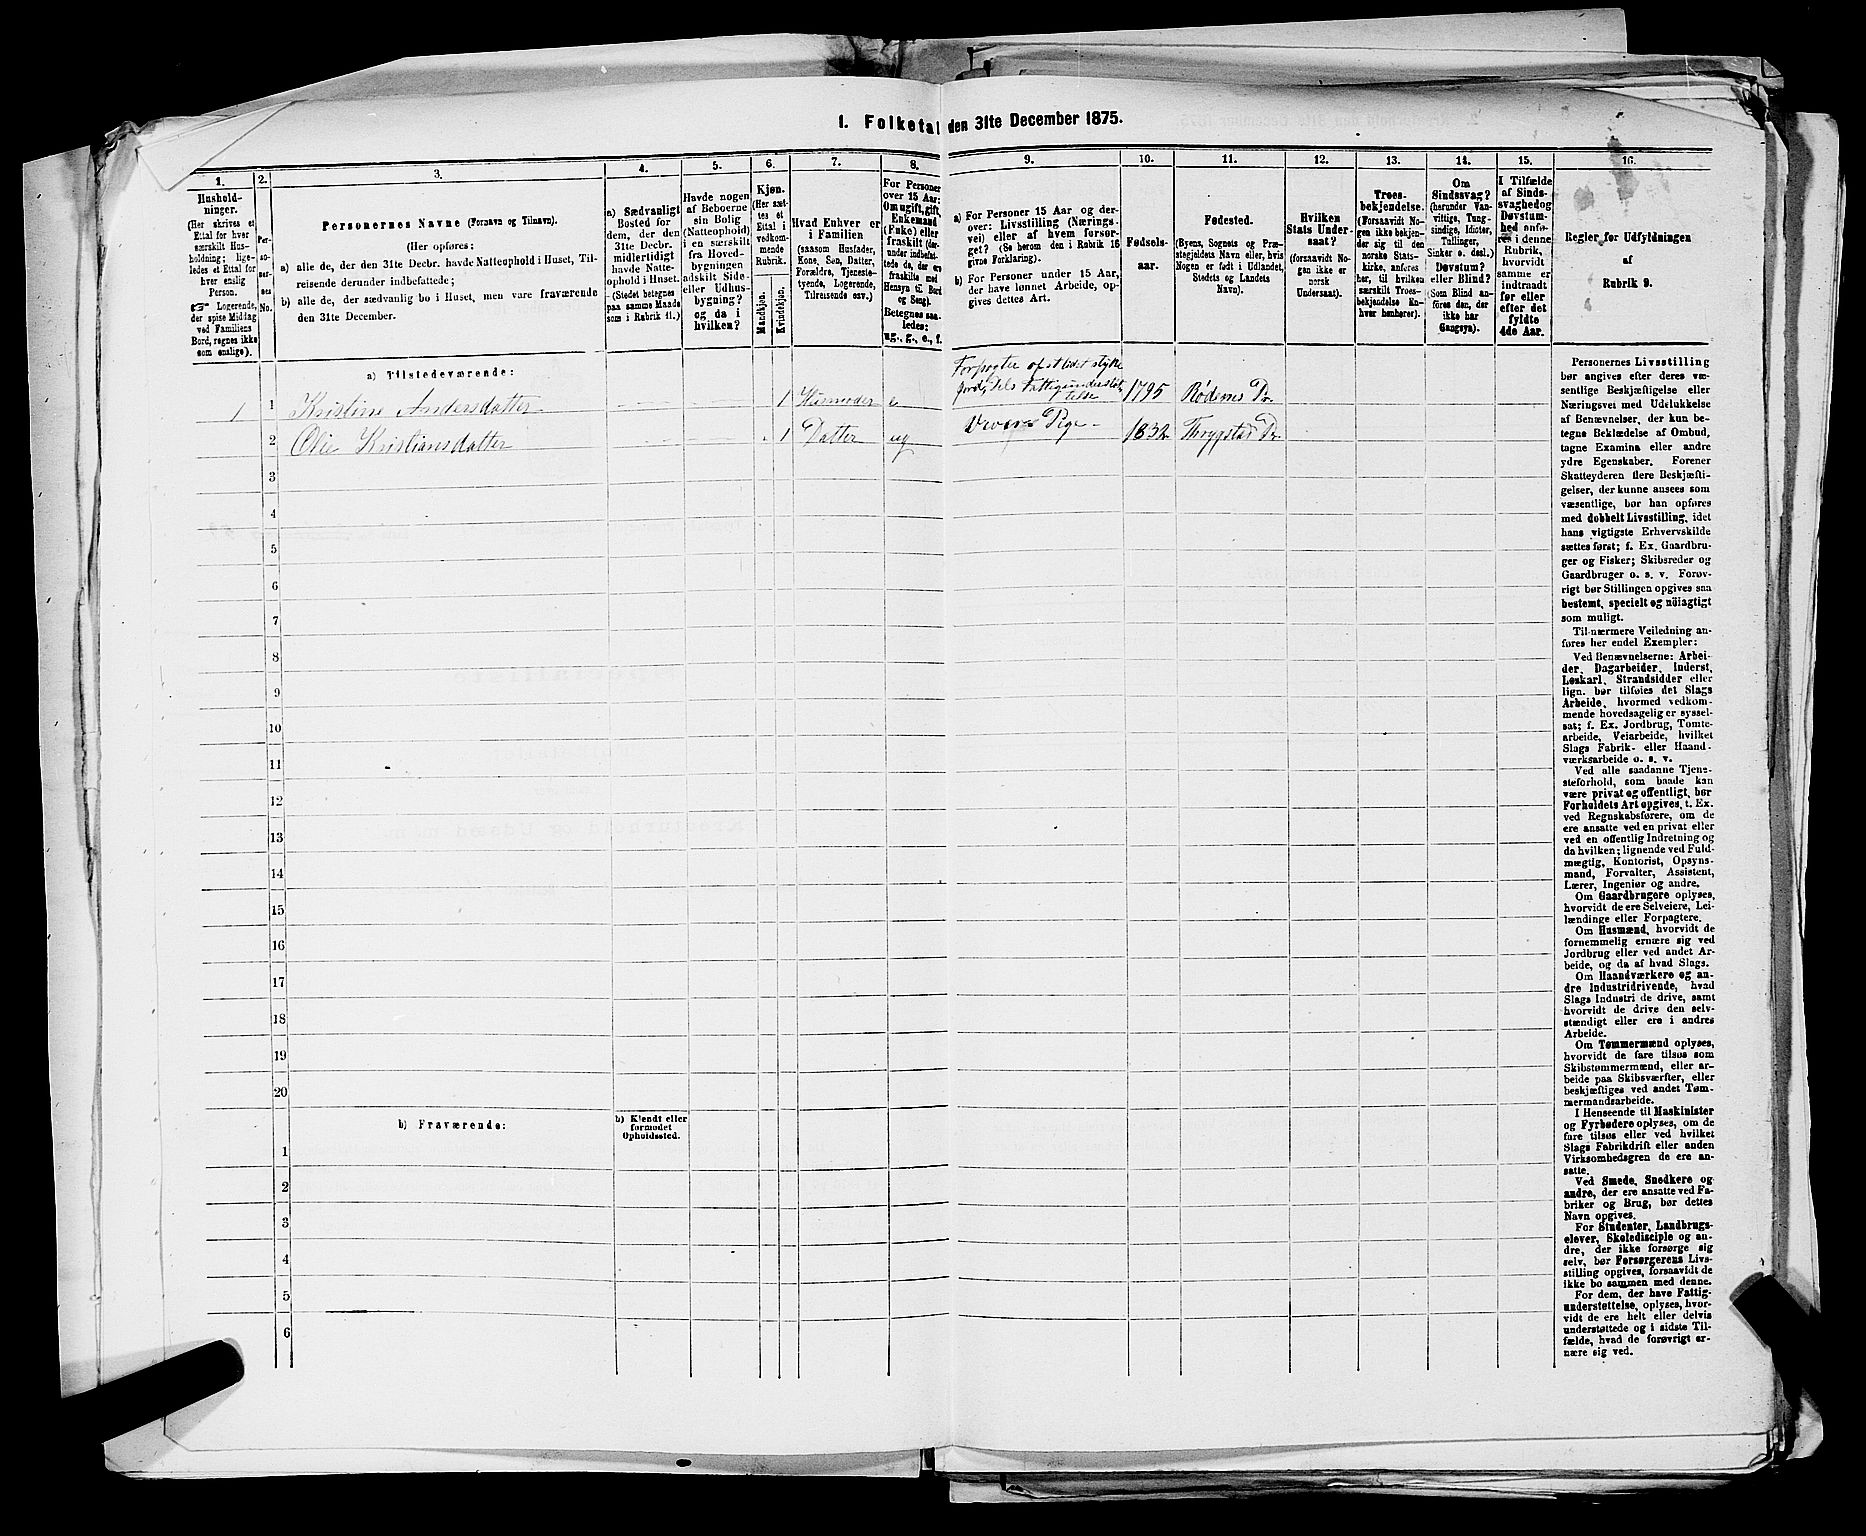 1. Folketal den 31te December 1875.
1.
Hushold-
ninger.
(Her skrives et
Ettal for hver
særskilt Hus-
holdning; lige-
ledes et Ettal for
hver enslig
Person.
☞ Logerende,
der spise Middag
ved Familiens
Bord, regnes ikke
som enslige).
2.
Per-
so-
ner-
nes
No.
3.
Personernes Navne (Fornavn og Tilnavn).
(Her opføres:
a) alle de, der den 31te Decbr. havde Natteophold i Huset, Til-
reisende derunder indbefattede;
b) alle de, der sædvanlig bo i Huset, men vare fraværende
den 31te December.
4.
a) Sædvanligt
Bosted for
dem, der den
31te Decbr.
midlertidigt
havde Natte-
ophold i Huset.
(Stedet betegnes
paa samme Maade
som i Rubrik 11.)
5.
Havde nogen
af Beboerne
sin Bolig
(Natteophold)
i en særskilt
fra Hoved-
bygningen
adskilt Side-
eller Udhus-
bygning?
og da i
hvilken?
6.
Kjøn.
(Her sæt-
tes et
Ettal i
vedkom-
mende
Rubrik.
Mandkjøn.
Kvindekjøn.
7.
Hvad Enhver er
i Familien
(saasom Husfader,
Kone, Søn, Datter,
Forældre, Tjeneste-
tyende, Logerende,
Tilreisende osv.)
8.
For Personer
over 15 Aar:
Om ugift, gift,
Enkemand
(Enke) eller
fraskilt (der-
under indbefat-
tede de, der ere
fraskilte med
Hensyn til Bord
og Seng).
Betegnes saa-
ledes:
ug., g., e., f.
9.
a) For Personer 15 Aar og der-
over: Livsstilling (Nærings-
vei) eller af hvem forsør-
get? (Se herom den i Rubrik 16
givne Forklaring).
b) For Personer under 15 Aar,
der have lønnet Arbeide, op-
gives dettes Art.
10.
Fødsels-
aar.
11.
Fødested.
(Byens, Sognets og Præ-
stegjeldets Navn eller, hvis
Nogen er født i Udlandet,
Stedets og Landets
Navn).
12.
Hvilken
Stats Under-
saat?
(forsaavidt No-
gen ikke er
norsk
Undersaat).
13.
Troes-
bekjendelse.
(Forsaavidt No-
gen ikke bekjen-
der sig til den
norske Stats-
kirke, anføres
her, til hvilket
særskilt Troes-
bekjendelse En-
hver henhører).
14.
Om
Sindssvag?
(herunder Van-
vittige, Tung-
sindige, Idioter,
Tullinger,
Sinker o. desl.)
Døvstum?
eller Blind?
(Som Blind an-
føres den, der
ikke har
Gangsyn).
15.
I Tilfælde
af Sinds-
svaghed og
Døvstum-
hed anfø-
res i denne
Rubrik,
hvorvidt
samme er
indtraadt
før eller
efter det
fyldte
4de Aar.
16.
Regler for Udfyldningen
af
Rubrik 9.
a) Tilstedeværende:
1 1 Kristine Andersdatter 1 Husmoder e Forpagter af et lidet stykke
jord, dels Fattigunderstøt-
telse 1795 Rødenes Pr.
2 Olie Kristiansdatter 1 Datter ug Pige 1832 Thrygstad Pr.
3
4
5
6
7
8
9
10
11
12
13
14
15
16
17
18
19
20
b) Fraværende:
b) Kjendt eller
formodet
Opholdssted.
1
2
3
4
5
6
Personernes Livsstilling
bør angives efter deres væ-
sentlige Beskjæftigelse eller
Næringsvei med Udelukkelse
af Benævnelser, der kun be-
tegne Beklædelse af Ombud,
tagne Examina eller andre
ydre Egenskaber. Forener
Skatteyderen flere Beskjæfti-
gelser, der kunne ansees som
væsentlige, bør han opføres
med dobbelt Livsstilling, idet
hans vigtigste Erhvervskilde
sættes først; f. Ex. Gaardbru-
ger og Fisker; Skibsreder og
Gaardbruger o. s. v. Forøv-
rigt bør Stillingen opgives saa
bestemt, specielt og nöiagtigt
som muligt.
Til nærmere Veiledning an-
føres her endel Exempler:
Ved Benævnelserne: Arbei-
der, Dagarbeider, Inderst,
Løskarl, Strandsidder eller
lign. bør tilføies det Slags
Arbeide, hvormed vedkom-
mende hovedsagelig er syssel-
sat; f. Ex. Jordbrug, Tomte-
arbeide, Veiarbeide, hvilket
Slags Fabrik- eller Haand-
værksarbeide o. s. v.
Ved alle saadanne Tjene-
steforhold, som baade kan
være privat og offentligt, bør
Forholdets Art opgives, t. Ex.
ved Regnskabsførere, om de
ere ansatte ved en privat eller
ved en offentlig Indretning og
da hvilken; lignende ved Fuld-
mægtig, Kontorist, Opsyns-
mand, Forvalter, Assistent,
Lærer, Ingeniør og andre.
Om Gaardbrugere oplyses,
hvorvidt de ere Selveiere, Lei-
lændinge eller Forpagtere.
Om Husmænd, hvorvidt de
fornemmelig ernære sig ved
Jordbrug eller ved andet Ar-
beide, og da af hvad Slags.
Om Haandværkere og an-
dre Industridrivende, hvad
Slags Industri de drive, samt
hvorvidt de drive den selv-
stændigt eller ere i andres
Arbeide.
Om Tømmermænd oplyses,
hvorvidt de fare tilsøs som
Skibstømmermænd, eller ar-
beide paa Skibsværfter, eller
beskjæftiges ved andet Tøm-
mermandsarbeide.
I Henseende til Maskinister
og Fyrbødere oplyses, om de
fare tilsøs eller ved hvilket
Slags Fabrikdrift eller anden
Virksomhedsgren de ere an-
satte.
Ved Smede, Snedkere og
andre, der ere ansatte ved Fa-
briker og Brug, bør dettes
Navn opgives.
For Studenter, Landbrugs-
elever, Skoledisciple og an-
dre, der ikke forsørge sig
selv, bør Forsørgerens Livs-
stilling opgives, forsaavidt de
ikke bo sammen med denne.
For dem, der have Fattig-
understøttelse, oplyses, hvor-
vidt de ere helt eller delvis
understøttede og i sidste Til-
fælde, hvad de forøvrigt er-
nære sig ved.